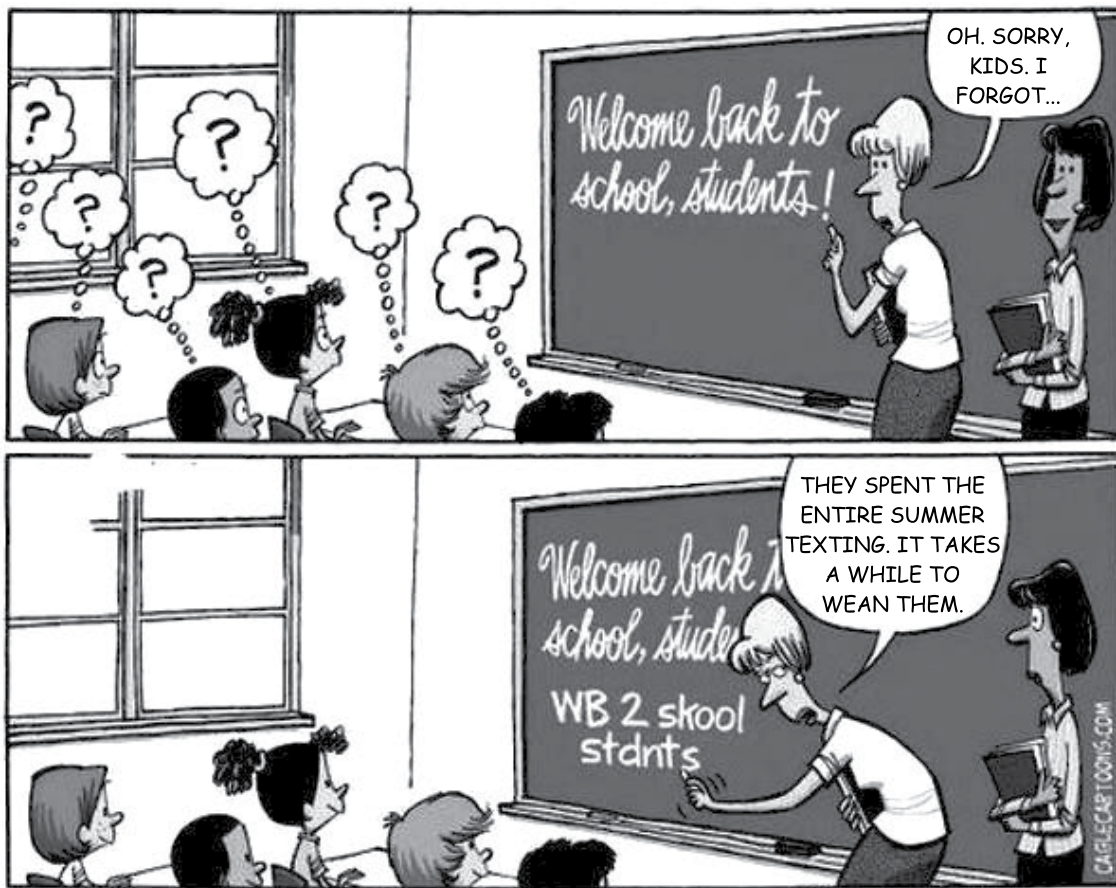 ?
?
?
?
?
?
Welcome back to
school, students!
OH. SORRY,
KIDS. I
FORGOT...
Welcome back t
school, stude
WB 2 skool
stdnts
THEY SPENT THE
ENTIRE SUMMER
TEXTING. IT TAKES
A WHILE TO
WEAN THEM.
CAGLECARTOONS.COM